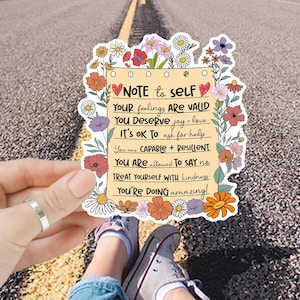 NOTE to SELF
YOUR feelings ARE VALID
YOU DESERVE joy + love
IT'S OK TO ask for help
You are CAPABLE + RESILIENT
YOU ARE allowed TO SAY no
TREAT YOURSELF WITH kindness
YOU'RE DOING amazing!